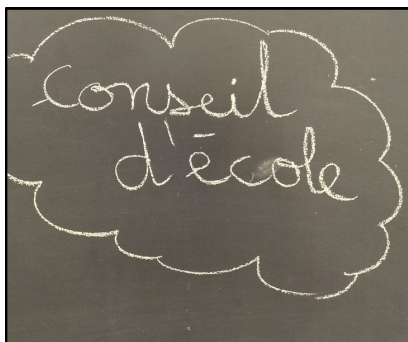 Conseil
d'école